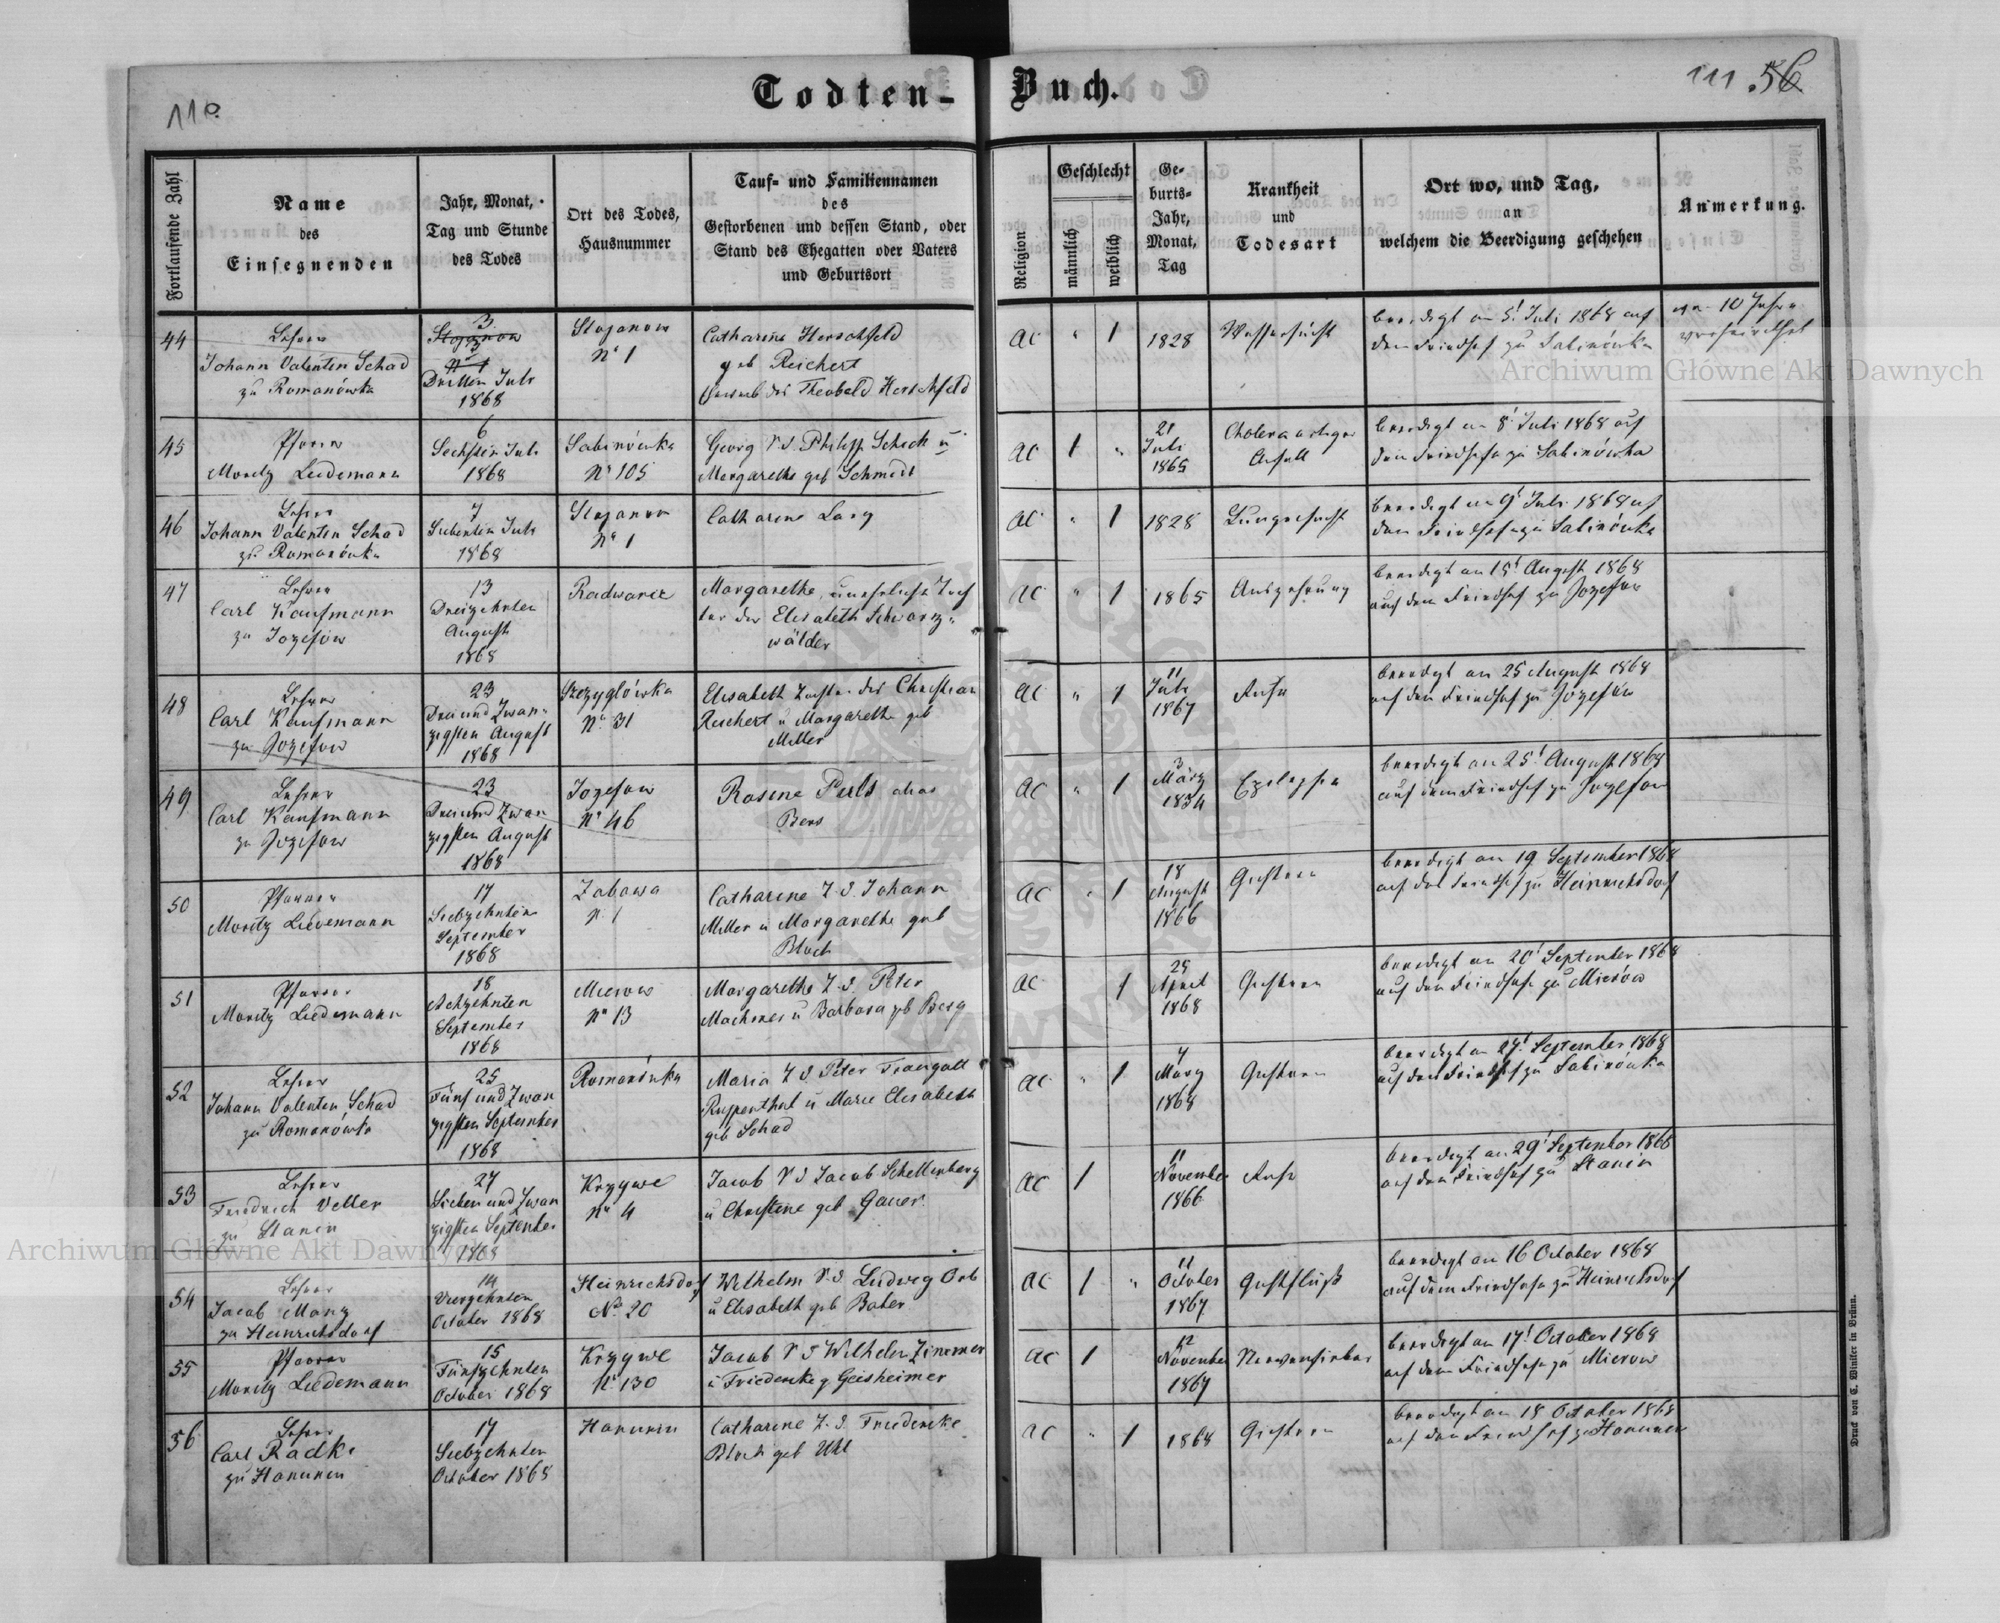 110
Todten-
Buch.
111. 56
Fortlaufende Zahl
Name
des
Einsegnenden
Jahr, Monat,
Tag und Stunde
des Todes
Ort des Todes,
Hausnummer
Tauf- und Familiennamen
des
Gestorbenen und dessen Stand, oder
Stand des Ehegatten oder Vaters
und Geburtsort
Religion
Geschlecht
männlich
weiblich
Ge-
burts-
Jahr,
Monat,
Tag
Krankheit
und
Todesart
Ort wo, und Tag,
an
welchem die Beerdigung geschehen
Anmerkung.
44
Lehrer
Johann Valentin Schad
zu Romanówka
3
Stojanow
No 1
Dritten Juli
1868
Stojanow
No 1
Catharina Herschfeld
geb Reichert
des Theobald Herschfeld
ac " 1
1828
Wassersucht
beerdigt am 5t Juli 1868 auf
dem Friedhof zu Sabinówka
10 Jahre
verheirathet
45
Pfarrer
Moritz Liedemann
6
Sechsten Juli
1868
Sabinówka
No 105
Georg S. d. Philipp Schick u
Margarethe geb Schmidt
ac 1 "
21
Juli
1865
Cholera artiger
Anfall
beerdigt am 8t Juli 1868 auf
dem Friedhofe zu Sabinówka
46
Lehrer
Johann Valentin Schad
zu Romanówka
7
Siebenten Juli
1868
Stojanow
No 1
Catharine Lang
ac " 1
1828
Lungensucht
beerdigt am 9t Juli 1868 auf
dem Friedhofe zu Sabinówka
47
Lehrer
Carl Kaufmann
zu Jozefow
13
Dreizehnten
August
1868
Radwanie
Margarethe, uneheliche Toch
ter der Elisabeth Schwarz-
wälder
ac " 1
1865
Auszehrung
beerdigt am 15t August 1868
auf dem Friedhof zu Jozefow
48
Lehrer
Carl Kaufmann
zu Jozefow
23
Drei und Zwan-
zigsten August
1868
Szczyglówka
No 31
Elisabeth Tochter des Christian
Reichert u Margarethe geb
Miller
ac " 1
11
Juli
1867
Ruhr
beerdigt am 25 August 1868
auf dem Friedhof zu Jozefow
49
Lehrer
Carl Kaufmann
zu Jozefow
23
Drei und Zwan
zigsten August
1868
Jozefow
No 46
Rosine Puls alias
Bers
ac " 1
3
März
1834
Epilepsie
beerdigt am 25t August 1868
auf dem Friedhof zu Jozefow
50
Pfarrer
Moritz Liedemann
17
Siebzehnten
September
1868
Zabawa
N. 1
Catharine T. d. Johann
Miller u Margarethe geb
Bloch
ac " 1
18
August
1866
Gichtern
beerdigt am 19 September 1868
auf dem Friedhof zu Heinrichsdorf
51
Pfarrer
Moritz Liedemann
18
Achtzehnten
September
1868
Mierow
No 13
Margarethe T. d. Peter
Machmer u Barbara geb Berg
ac 1
25
April
1868
Gichtern
beerdigt am 20t September 1868
auf dem Friedhofe zu Mierów
52
Lehrer
Johann Valentin Schad
zu Romanówka
25
Fünf und Zwan
zigsten September
1868
Romanówka
Maria T. d. Peter Traugott
Ruppenthal u Marie Elisabeth
geb Schad
ac " 1
7
März
1868
Gichtern
beerdigt am 27t September 1868
auf dem Friedhof zu Sabinówka
53
Lehrer
Friedrich Veller
zu Stanin
27
Sieben und Zwan
zigsten September
1868
Krzywe
No 4
Jacob S d Jacob Schellenberg
u Christine geb Gauer
ac 1
11
November
1866
Ruhr
beerdigt am 29t September 1868
auf dem Friedhof zu Stanin
54
Lehrer
Jacob Manz
zu Heinrichsdorf
14
Vierzehnten
October 1868
Heinrichsdorf
No. 20
Wilhelm S. d. Ludwig Orb
u Elisabeth geb Bober
ac 1 "
11
October
1867
beerdigt am 16 October 1868
auf dem Friedhofe zu Heinrichsdorf
55
Pfarrer
Moritz Liedemann
15
Fünfzehnten
October 1868
Krzywe
N. 130
Jacob S d Wilhelm Zimmer
u Friederike g Geisheimer
ac 1
12
November
1867
Nervenfieber
beerdigt am 17t October 1868
auf dem Friedhofe zu Mierow
56
Lehrer
Carl Radke
zu Hanunin
17
Siebzehnten
October 1868
Hanunin
Catharine T. d. Friedericke
Bloch geb Uhl
ac " 1
1868
Gichtern
beerdigt am 18 October 1868
auf dem Friedhof zu Hanunin
Druck von C. Winiker in Brünn.
Archiwum Główne Akt Dawnych
Archiwum Główne Akt Dawnych